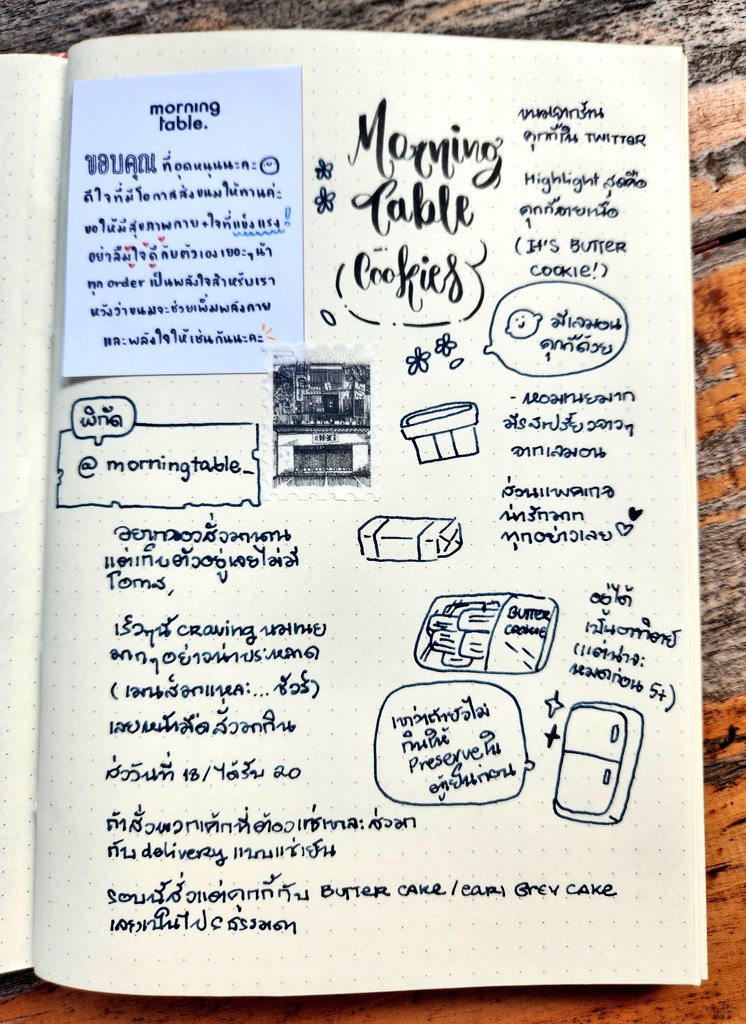 morning
table.
ขอบคุณ ที่อุดหนุนนะคะ
ดีใจที่มีโอกาสส่งขนมให้ทานค่ะ
ขอให้มีสุขภาพกาย+ใจที่แข็งแรง!
อย่าลืมใจดีกับตัวเองเยอะๆน้า
ทุก order เป็นพลังใจสำหรับเรา
หวังว่าขนมจะช่วยเพิ่มพลังกาย
และพลังใจให้เช่นกันนะคะ
Morning
Table
Cookies
ขนมจากร้าน
คุกกี้ใน TWITTER
Highlight สุดคือ
คุกกี้ลายเนื้อ
(IT'S BUTTER
COOKIE!)
มีเลมอน
คุกกี้ด้วย
- หอมเนยมาก
มีรสเปรี้ยวจางๆ
จากเลมอน
ส่วนแพคเกจ
น่ารักมาก
ทุกอย่างเลย
พิกัด
@morningtable_
อยากลองสั่งมานาน
แต่เก็บตัวอยู่เลยไม่มี
โอกาส,
เร็วๆนี้ craving นมเนย
มากๆอย่างน่าประหลาด
(เมนส์มาแหละ... ชัวร์)
เลยหน้ามืดสั่งมากิน
ส่งวันที่ 18/ได้รับ 20
BUTTER
COOKIE
อยู่ได้
เป็นอาทิตย์
(แต่น่าจะ
หมดก่อน 5+)
เขาว่าถ้ายังไม่
กินให้
Preserve ใน
ตู้เย็นก่อน
ถ้าสั่งพวกเค้กที่ต้องแช่เขาจะส่งมา
กับ delivery แบบแช่เย็น
รอบนี้สั่งแต่คุกกี้กับ BUTTER CAKE/EARL GREY CAKE
เลยเป็นไปรธรรมดา